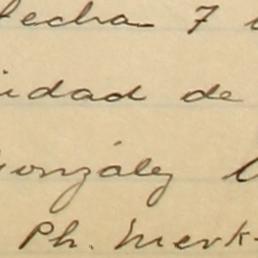 fecha 7
idad de
onzález
Ph. Merk-